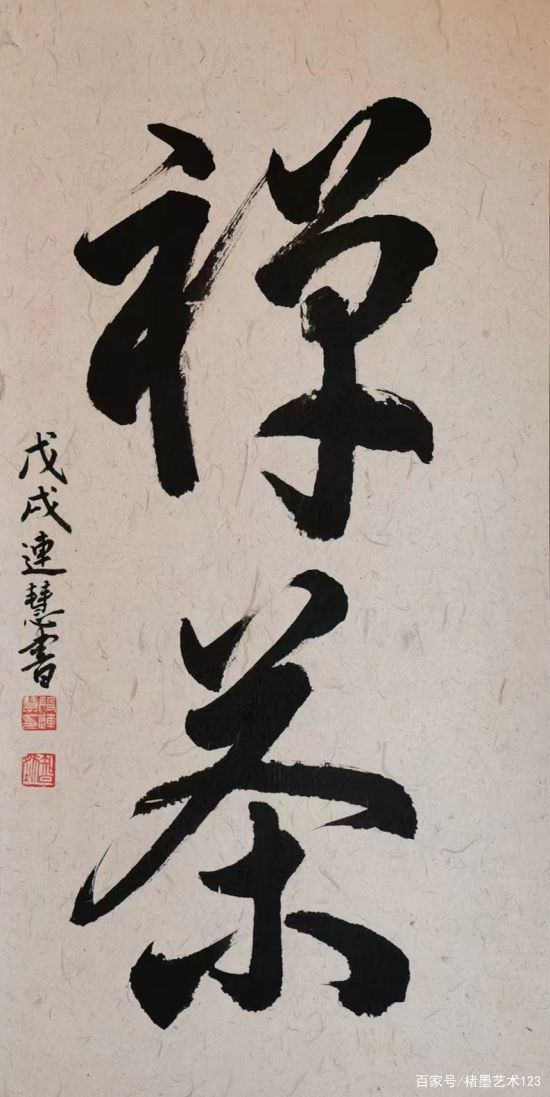 禅茶
戊戌連慧書
百家号/楮墨艺术123